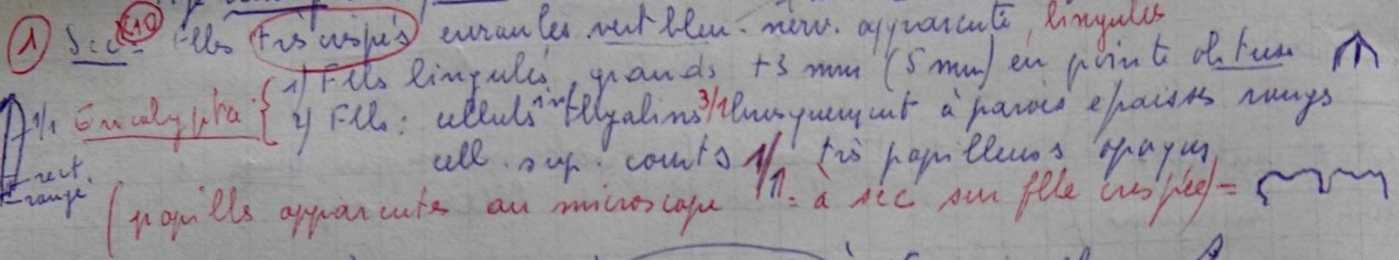 ① Sec = flles très crispés enroulés vert bleu. nerv. apparente, lingulés
1) Flls lingulés, grands +3 mm (5 mm) en pointe obtuse
1/1 Encalypta { 2) Flls : cellules inf Hyalines 3/1 brusquement à parois épaisses rouges
cell. sup. courts 1/1 très papilleuses opaques
rect. rouge
(papilles apparentes au microscope à sec sur flle crispée) =